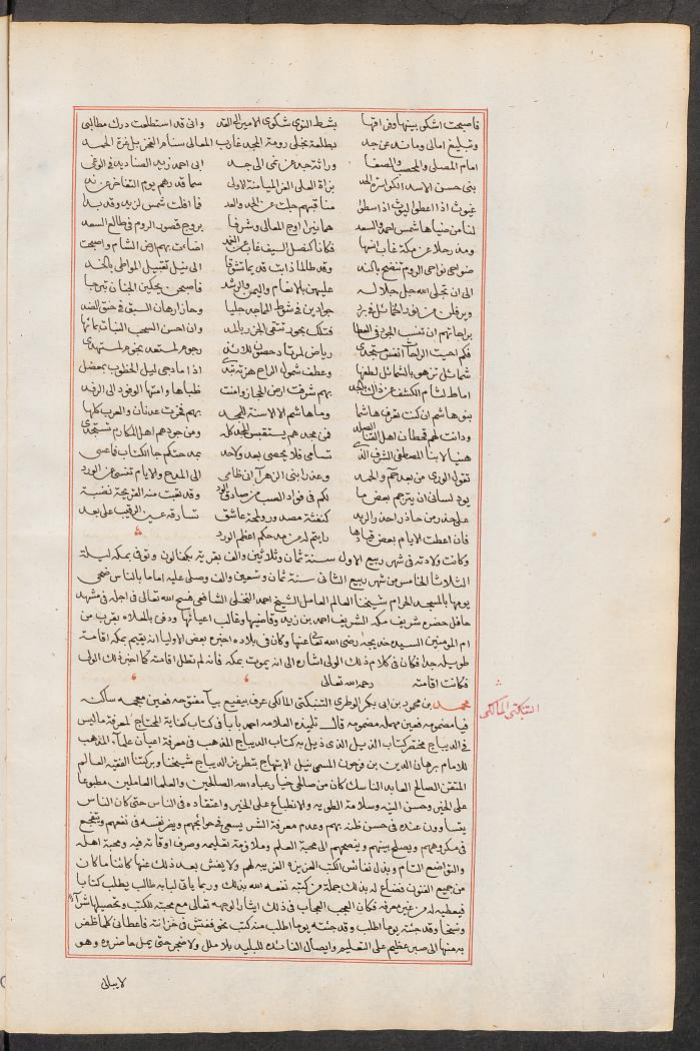 فاصبحت اشكو بينها وفراقها بشط النوى شكوى الاسير الى القد وانى قد استطلعت درك مطالبى
وتبليغ امالى وماند عن جد بطلعة نجلى رومة المجد غارب المعالى سنام الفخر بل غرة الحمد
امام المصلى والمحصب والصفا وراثة جد عن نمى الى جد ابى احمد زيد الصناديد فى الوغى
بنى حسن الاسد بزاة العلى الغر الميامنة الاولى سما قدرهم يوم التفاخر عن ند
غيوث اذا اعطوا ليوث اذا سطوا مناقبهم جلت عن الحد والعد فا افلت شمس لزيد وقد بدا
لنا من ضياها شمس احمد والسعد هما نيرا اوج المعالى وشرفا بروج قصور الروم فى طالع السعد
ومذ رحلا عن مكة غاب انسها فكانا كنصل السيف غاب عن الغمد اضاءت بهم ارض الشام واصبحت
ضواحى نواحى الروم تنفح بالند وقد طالما ذابت قد يما تشوقا الى نيل تقبيل المواطى بالخد
الى ان تجلى الله جل جلاله عليهن بالانعام واليمن والرشد فاصبحن يحكين الجنان تبرجا
ويرفلن من نور الخمائل فى برد جوادين فى شوط الماجد جليا وحازا رهان السبق فى حنق الضد
فتلك بحور تنتمى الجزر بالمد وان احسن السحب النبات بمائها
فكم احيت الراحات انفس رياض لمرتاد حصون للائذ رجوم لمستعد نجوم لمستهدى
شمائل تزهو بالشمائل لطفها وعطف شمول الراح هزته تبدى اذا ما دجى ليل الخطوب بمعضل
اماط لثام الكشف عن ذاك بالجد بهم شرفت ارض الحجاز وامنت ظباها وامتها الوفود الى الرفد
بنو هاشم ان كنت تعرف هاشما وما هاشم الا الاسنة للمجد بهم فخرت عدنان والعرب كلها
ودانت لهم قحطان اهل القنا الصلد فى مجدهم يستقبس المجد كله ومن جودهم اهل المكارم تستجدى
هنيا لابنا المصطفى الشرف الذى تسامى فلا يحصى بعد ولا حد بمدحتكم جا الكتاب فما عسى
تقول الورى من بعد حم والحمد وعذرا بنى الزهرا انى ظامى الى المدح والايام تنسى عن الورد
يود لسانى ان يترجم بعض ما لكم فى فواد الصب من صادق الود وقد نقبت منه القريحة نضبة
على حذر من حاذر احذر الربد كنفثة مصدور ولمحة عاشق تسارقه عين الرقيب على بعد
فان اعطت الايام بعض قيادها رايتم له من مدحكم اعظم الورد
وكانت ولادته فى شهر ربيع الاول سنة ثمان وثلاثين والف بقرية بكمالون وتوفى بمكه ليلة
الثلاثا الخامس من شهر ربيع الثانى سنة ثمان وتسعين والف وصلى عليه اماما بالناس ضحى
يومها بالمسجد الحرام شيخنا العالم العامل الشيخ احمد النخلى الشافعى فسح الله تعالى فى اجله فى مشهد
حافل حضره شريف مكه الشريف احمد بن زيد وقاضيها وغالب اعيانها ودفن بالمعلاه بقرب من
ام المومنين السيده خديجه رضى الله تعالى عنها وكان فى بلاده اخبره بعض الاوليا انه يقيم بمكه اقامة
طويله جدا فكان فى كلام ذلك الولى اشاره الى انه يموت بمكه فانه لم تطل اقامته كما اخبر ذلك الولى
فكانت اقامته رحمه الله تعالى
محمد بن محمود بن ابى بكر الوطرى التنبكتى المالكى عرف ببغيع بباء مفتوحه فغين معجمه ساكنه
فياء مضمومه فعين مهمله مضمومه قال تلميذه العلامه احمد بابا فى كتاب كفاية المحتاج لمعرفة ما ليس
فى الديباج مختصر كتاب الذيل الذى ذيل به كتاب الديباج المذهب فى معرفة اعيان علماء المذهب
للامام برهان الدين بن فرحون المسمى نيل الابتهاج بتطريز الديباج شيخنا وبركتنا الفقيه العالم
المتفنن الصالح العابد الناسك كان من صالحى خيار عباد الله الصالحين والعلما العاملين مطبوعا
على الخير وحسن النيه وسلامة الطويه والانطباع على الخير واعتقاده فى الناس حتى كان الناس
يتساوون عنده فى حسن ظنه بهم وعدم معرفة الشر يسعى فى حوائجهم ويضر نفسه فى نفعهم ويتفجع
فى مكروههم ويصلح بينهم وينصحهم الى محبة العلم وملازمة تعليمه وصرف اوقاته فيه ومحبة اهله
والتواضع التام وبذل نفائس الكتب العزيزه الغريبه لهم ولا يفتش بعد ذلك عنها كائنا ما كان
من جميع الفنون فضاع له بذلك جملة من كتبه نفعه الله بذلك وربما ياتى لبابه طالب يطلب كتابا
فيعطيه له من غير معرفه فكان العجب العجاب فى ذلك ايثارا لوجهه تعالى مع محبته للكتب وتحصيلها شراء
ونسخا وقد جئته يوما اطلب منه كتب نحو ففتش فى خزانته فاعطانى كلما ظفر
به منها الى صبر عظيم على التعليم وايصال الفائده للبليد بلا ملل ولا ضجر حتى يمل حاضروه وهو
لا يبالى
التنبكتى المالكى